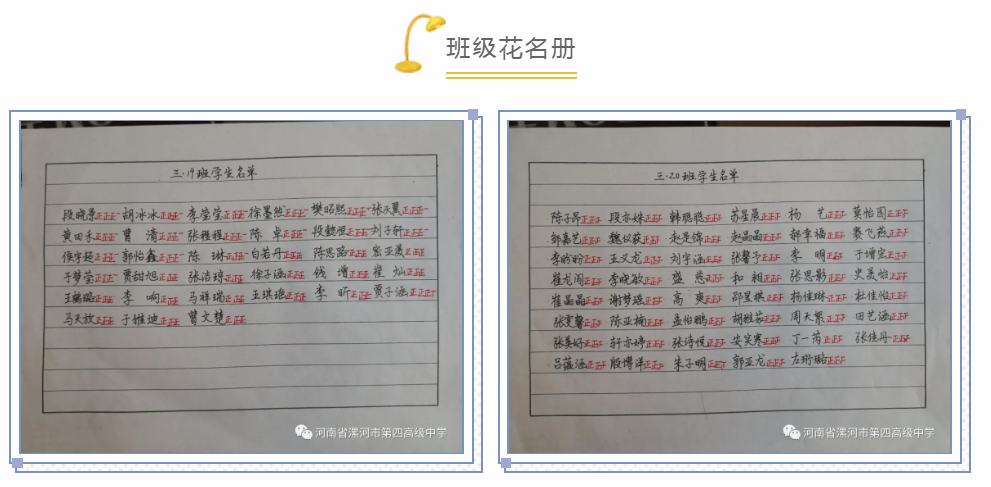 班级花名册
三·19班学生名单
段晓景 胡冰冰 李莹莹 徐墨然 樊昭熙 张天翼
黄田禾 曹 清 张程程 陈 卓 段懿恒 刘子轩
侯宇超 郭怡鑫 陈 琳 白若丹 陈思路
于梦莹 贾甜旭 张洁琼 徐子涵 钱 增 翟 灿
李 响 马祥瑞 王琪瑶 李 昕 贾子涵
马天放 于雅迪 曾文楚
河南省漯河市第四高级中学
三·20班学生名单
陈子昂 段亦姝 韩聪聪 苏星晨 杨 艺 莫怡园
邹嘉艺 魏仪获 赵是锦 赵晶晶 郭幸福 樊飞燕
李盼盼 王义龙 刘宇涵 张馨予 李 明 于增宏
崔龙阁 李晓敏 盛 恩 和 祖 张思影 史美怡
崔晶晶 谢梦瑶 高 爽 邵昱棋 杨佳琳 杜佳怡
张雯馨 陈亚楠 孟怡鹏 周天絮 田艺涵
张美好 轩亦婷 张诗悦 安笑寒 丁一芮 张佳丹
吕蕴涵 殷博洋 朱子明 郭亚龙 左珩璐
河南省漯河市第四高级中学